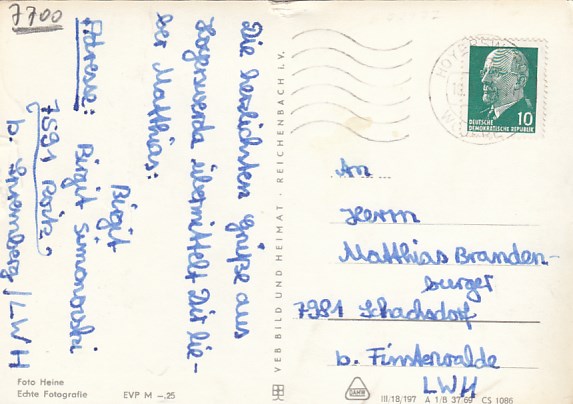 7700
Die herzlichsten Grüße aus
Hoyerswerda übermittelt Dir lie-
ber Matthias:
Birgit
Adresse: Birgit Simonowski
7591
b. Spremberg/LWH
Foto Heine
Echte Fotografie
EVP M -.25
VEB BILD UND HEIMAT · REICHENBACH I. V.
10
DEUTSCHE
DEMOKRATISCHE REPUBLIK
An
Herrn
Matthias Branden-
burger
7981 Schacksdorf
b. Finsterwalde
LWH
III/18/197 A 1/B 37/69 CS 1086